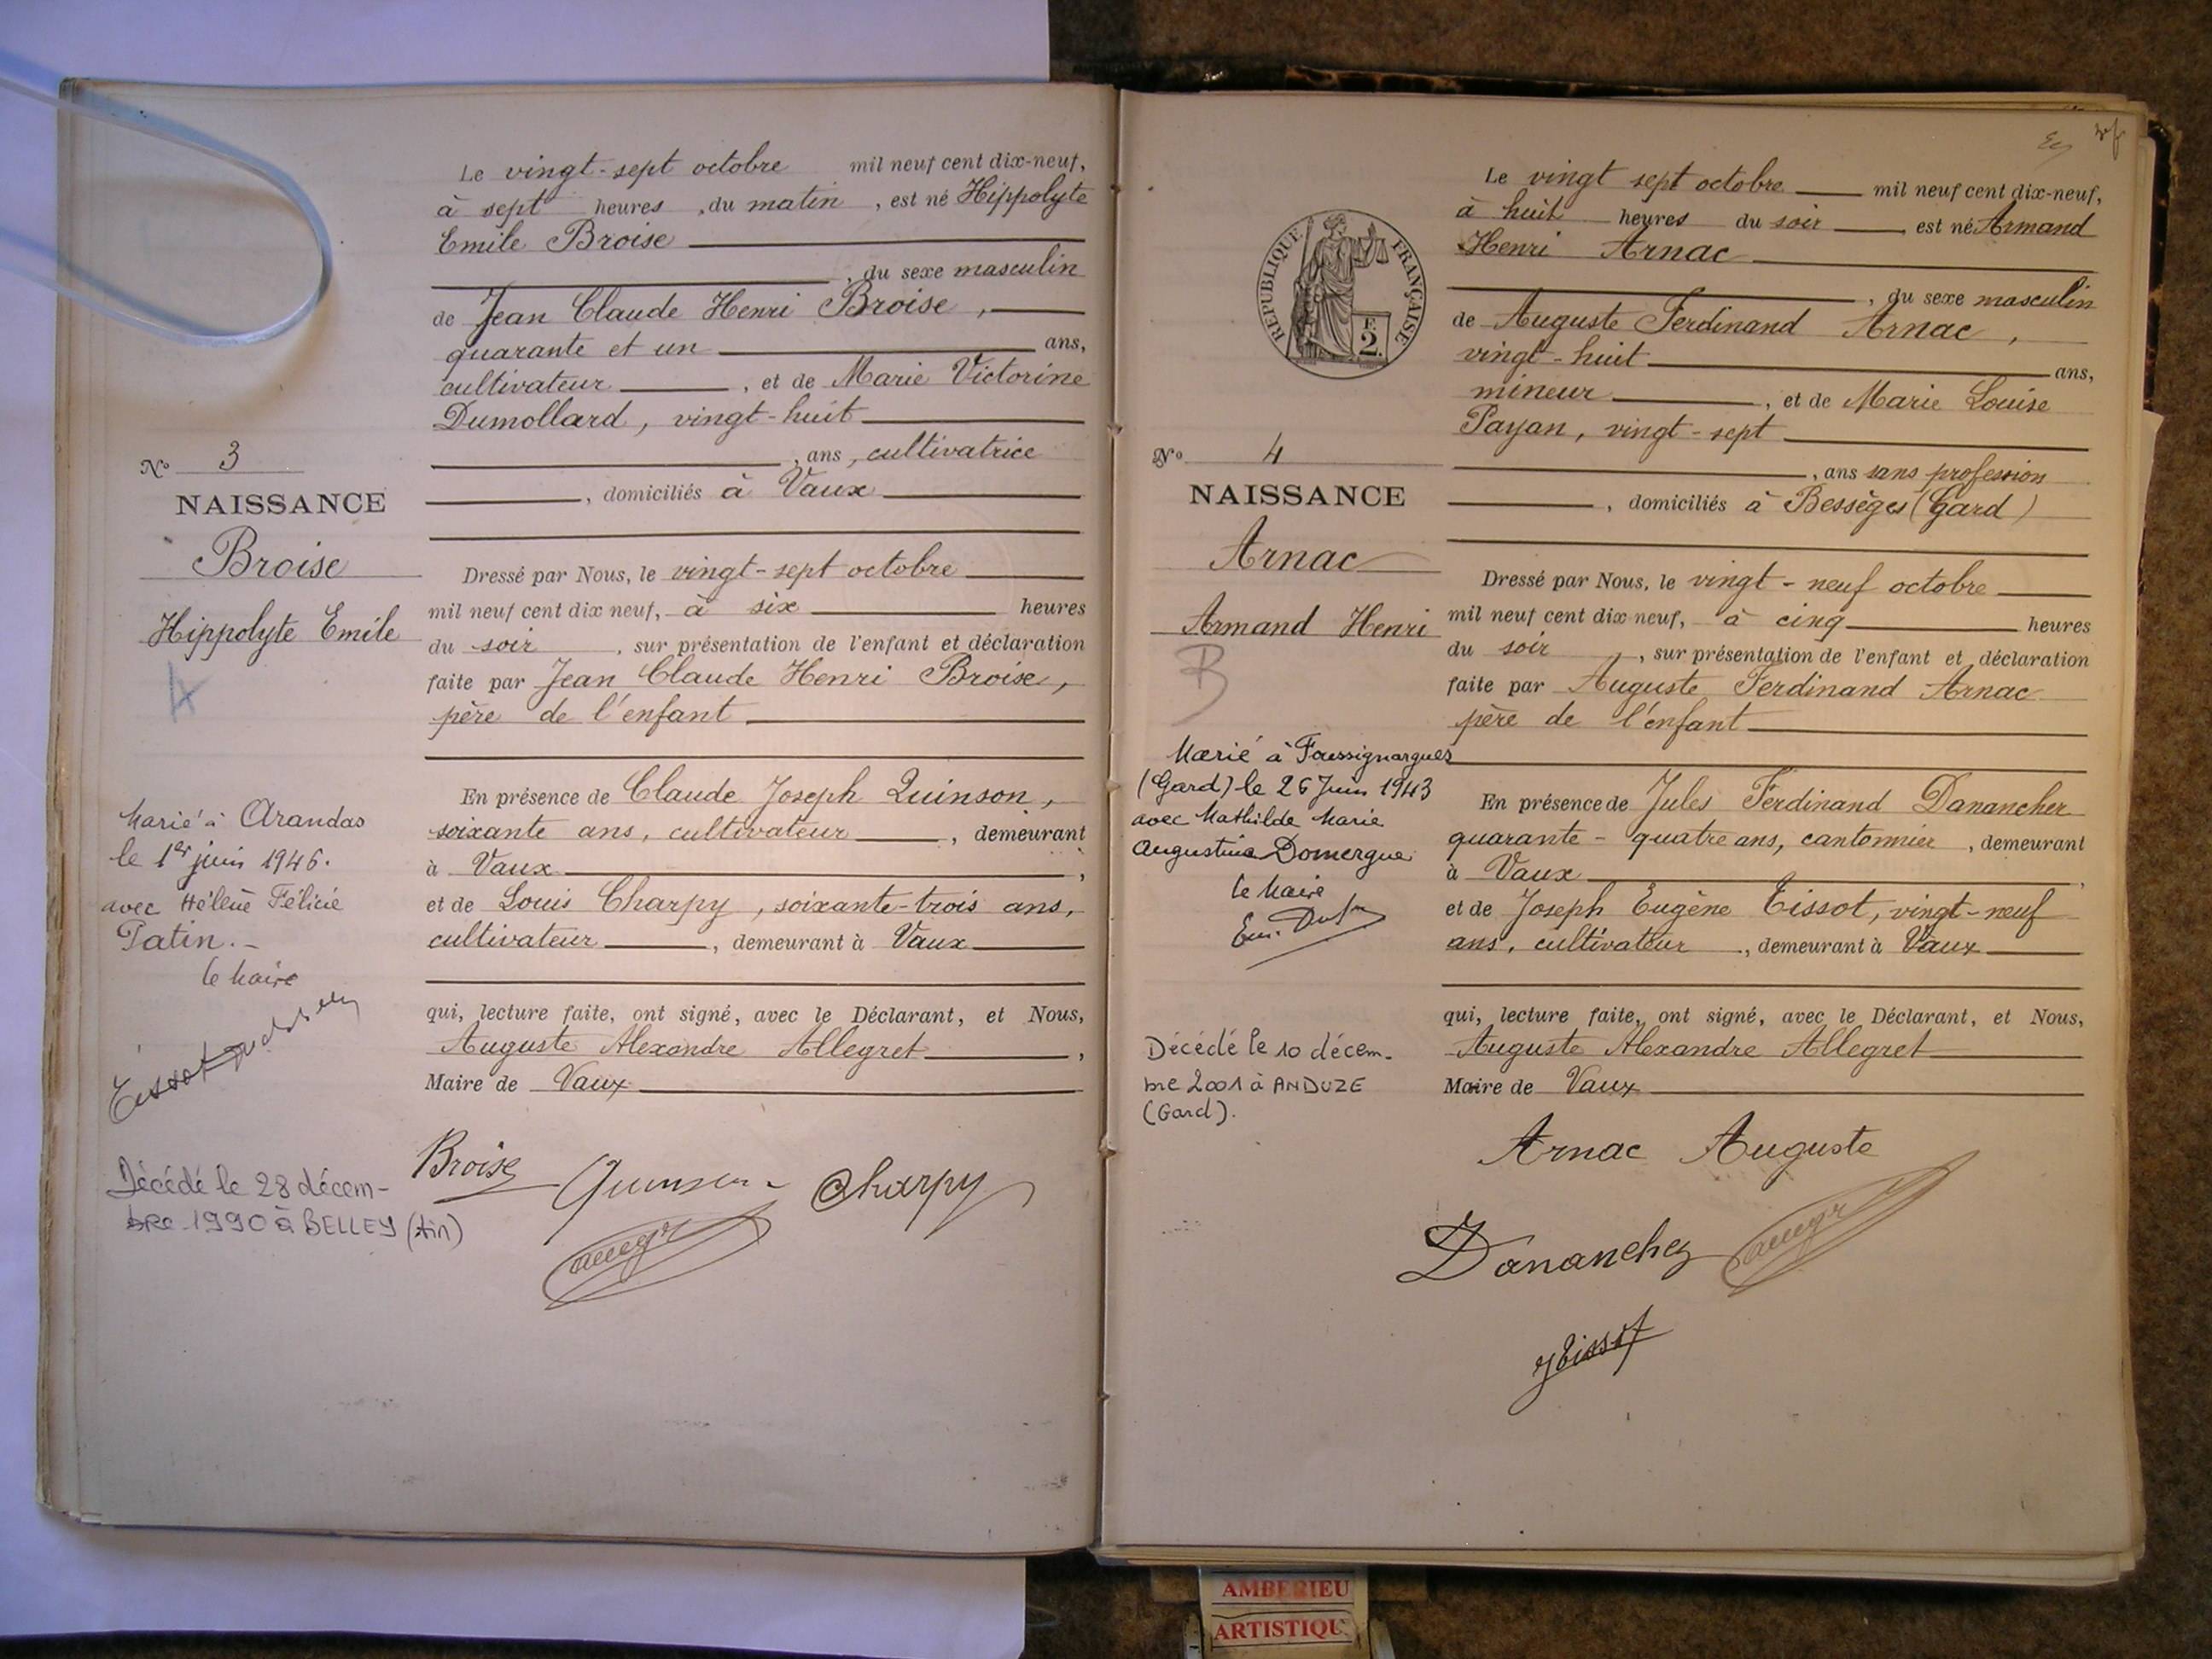 Le vingt-sept octobre mil neuf cent dix-neuf,
à sept heures , du matin , est né Hippolyte
Emile Broise
, du sexe masculin
de Jean Claude Henri Broise ,
quarante et un ans,
cultivateur , et de Marie Victorine
Dumollard, vingt-huit
, ans, cultivatrice
, domiciliés à Vaux
Nº 3
NAISSANCE
Broise
Hippolyte Emile
4
Dressé par Nous, le vingt-sept octobre
mil neuf cent dix neuf, à six heures
du soir , sur présentation de l'enfant et déclaration
faite par Jean Claude Henri Broise,
père de l'enfant
En présence de Claude Joseph Quinson,
soixante ans, cultivateur , demeurant
à Vaux ,
et de Louis Charpy, soixante-trois ans,
cultivateur , demeurant à Vaux
qui, lecture faite, ont signé, avec le Déclarant, et Nous,
Auguste Alexandre Allegret ,
Maire de Vaux
Marié à Arandas
le 1er juin 1946.
avec Hélène Félicie
Patin.-
le Maire
Tissot
Décédé le 28 décem-
bre 1990 à BELLEY (Ain)
Broise Quinson Charpy
Le vingt sept octobre mil neuf cent dix-neuf,
à huit heures du soir , est né Armand
Henri Arnac
, du sexe masculin
de Auguste Ferdinand Arnac ,
vingt-huit ans,
mineur , et de Marie Louise
Payan, vingt-sept
, ans sans profession
, domiciliés à Bessèges (Gard)
RÉPUBLIQUE FRANÇAISE
F.
2.
Nº 4
NAISSANCE
Arnac
Armand Henri
B
Dressé par Nous, le vingt-neuf octobre
mil neuf cent dix neuf, à cinq heures
du soir , sur présentation de l'enfant et déclaration
faite par Auguste Ferdinand Arnac
père de l'enfant
En présence de Jules Ferdinand Danancher
quarante-quatre ans, cantonnier , demeurant
à Vaux ,
et de Joseph Eugène Tissot, vingt-neuf
ans, cultivateur , demeurant à Vaux
qui, lecture faite, ont signé, avec le Déclarant, et Nous,
Auguste Alexandre Allegret
Maire de Vaux
Marié à Foussignargues
(Gard) le 26 Juin 1943
avec Mathilde Marie
Augustine Domergue
le Maire
Décédé le 10 décem-
bre 2001 à ANDUZE
(Gard).
Arnac Auguste
Dananchez
JTissot
AMBERIEU
ARTISTIQU